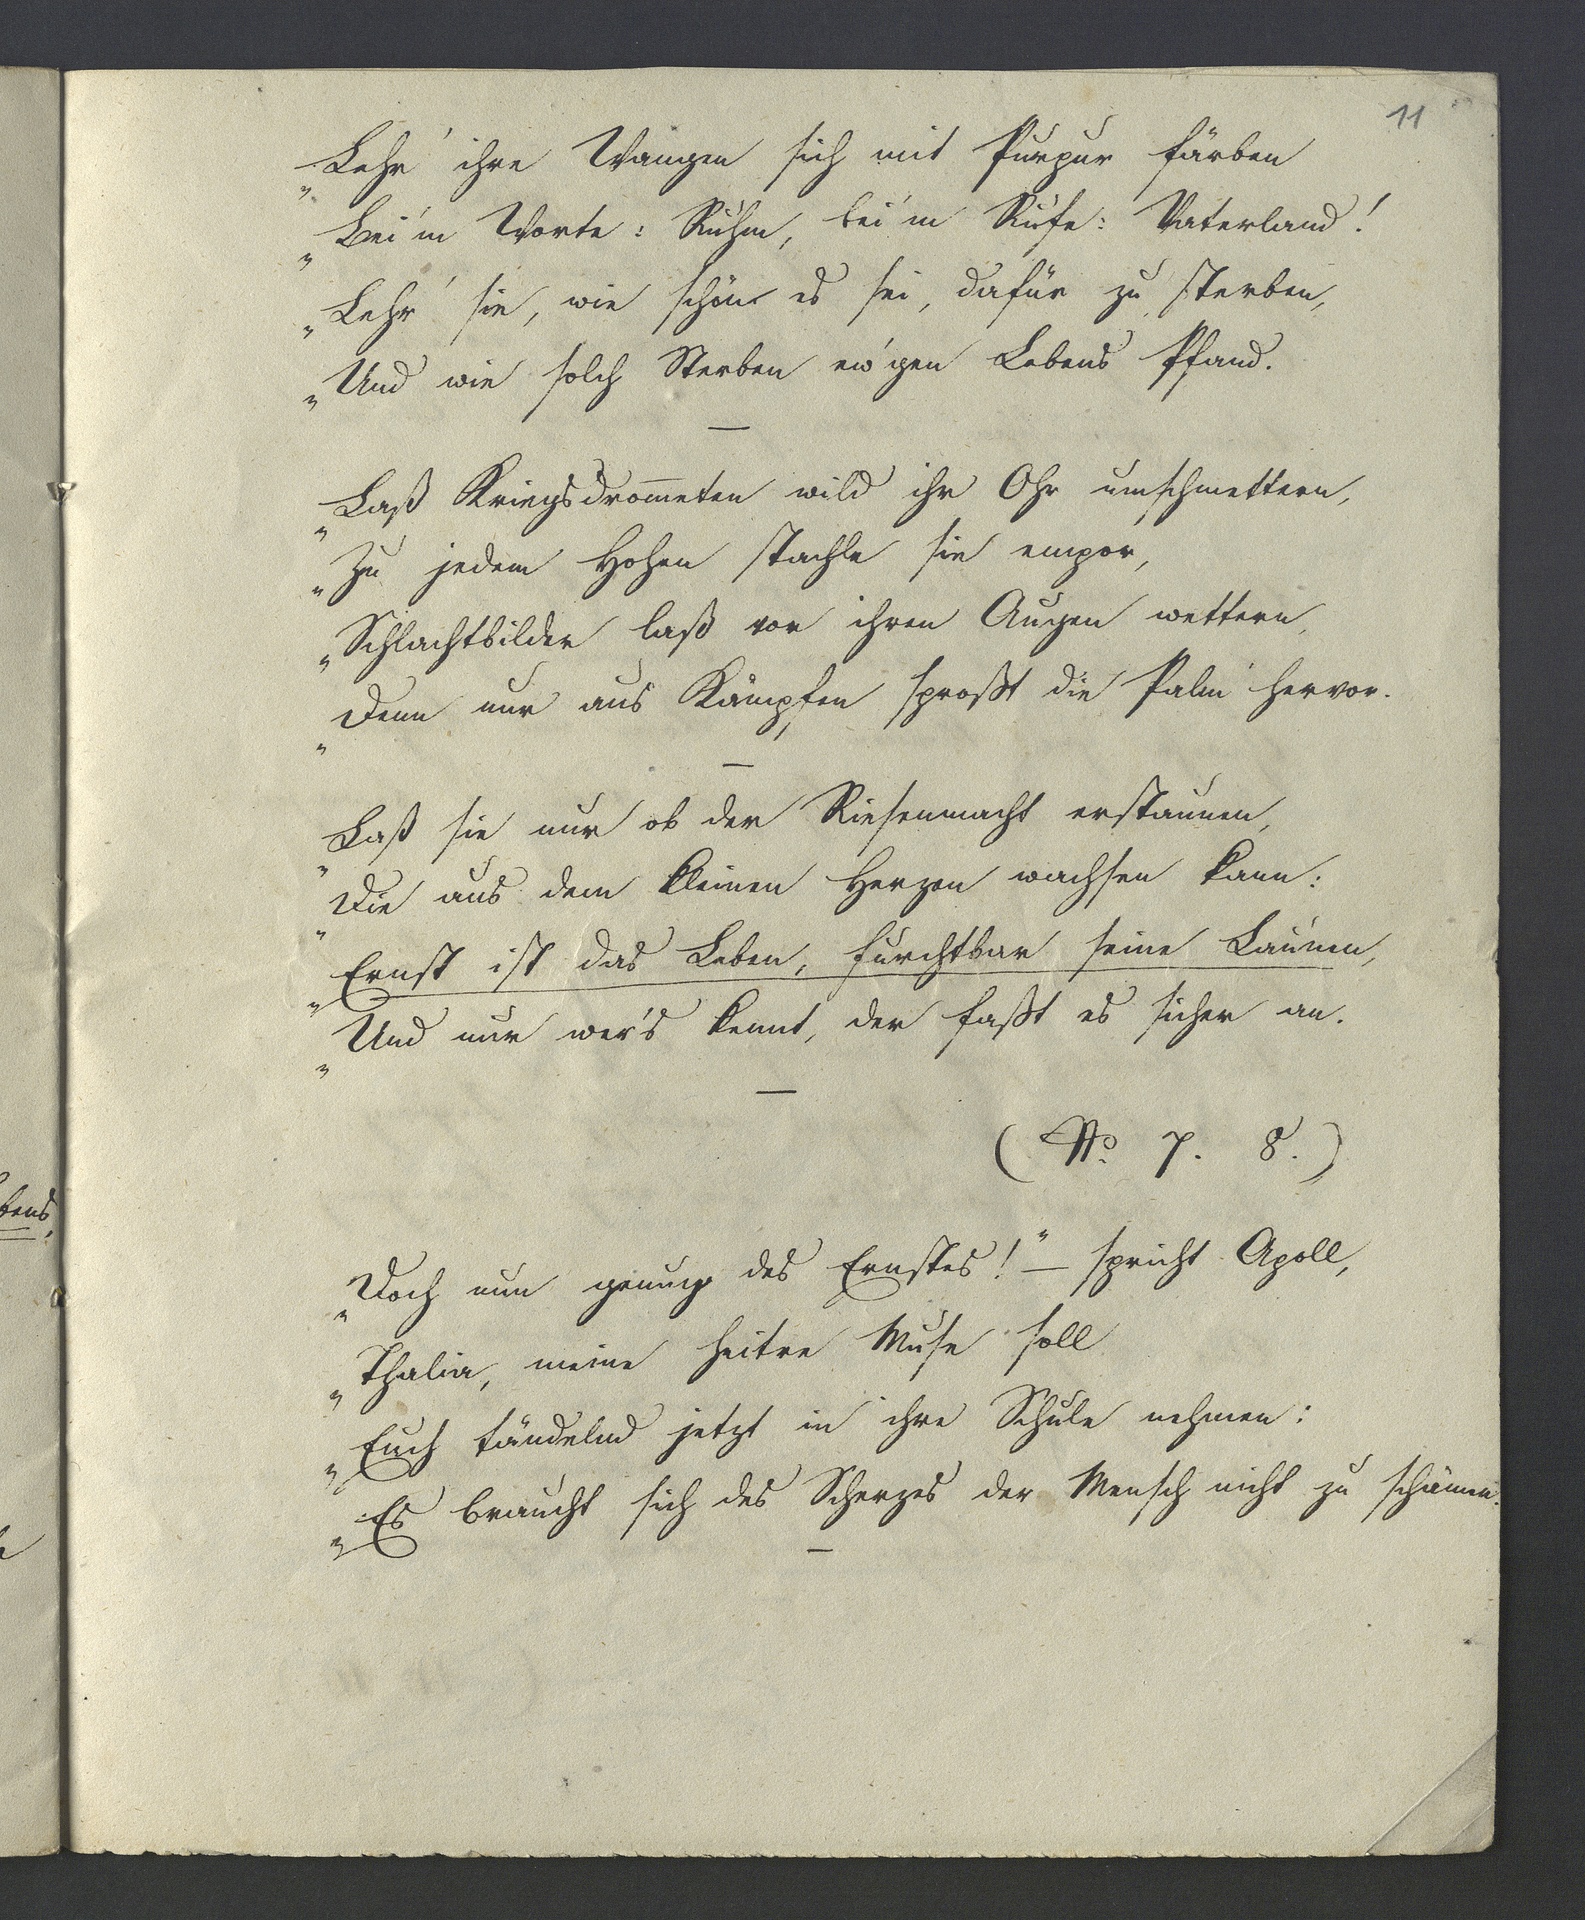 11
„Lehr' ihre Wangen sich mit Purpur färben
„Bei'm Worte: Ruhm, bei'm Rufe: Vaterland!
„Lehr' sie, wie schön es sei, dafür zu sterben,
„Und wie solch Sterben ew'gen Lebens Pfand.
—
„Laß Kriegsdrom̅eten wild ihr Ohr umschmettern,
„Zu jedem Hohen stachle sie empor,
„Schlachtbilder laß vor ihren Augen wettern,
„Denn nur aus Kämpfen sproßt die Palm' hervor.
—
„Laß sie nur ob der Riesenmacht erstaunen,
„Die aus dem kleinen Herzen wachsen kann:
„Ernst ist das Leben, furchtbar seine Launen,
„Und nur wer's kennt, der faßt es sicher an.
—
(No. 7. 8.)
„Doch nun genug des Ernstes!" — spricht Apoll,
„Thalia, meine heitre Muse soll
„Euch tändelnd jetzt in ihre Schule nehmen:
„Es braucht sich des Scherzes der Mensch nicht zu schämen.
—